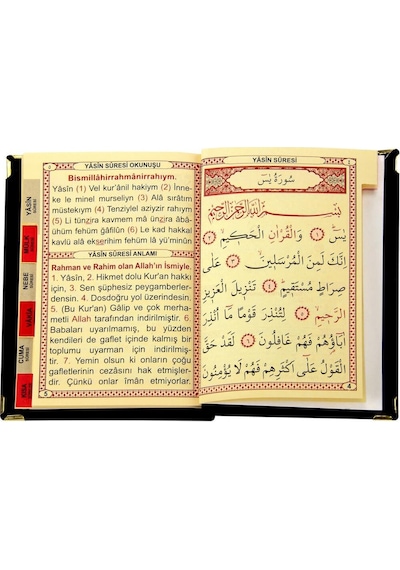 YÂSİN SÛRESİ OKUNUŞU
Bismillâhirrahmânirrahıym.
Yâsîn (1) Vel kur'ânil hakiym (2) İnne-
ke le minel murseliyn (3) Alâ sırâtım
müstekıym (4) Tenziylel aziyzir rahıym
(5) Li tünzira kavmem mâ ünzira âbâ-
ühüm fehüm ğâfilûn (6) Le kad hakkal
kavlü alâ ekserihim fehüm lâ yü'minûn
YÂSİN SÛRESİ ANLAMI
Rahman ve Rahim olan Allah'ın İsmiyle.
1. Yâsîn, 2. Hikmet dolu Kur'an hakkı
için, 3. Sen şüphesiz peygamberler-
densin. 4. Dosdoğru yol üzerindesin.
5. (Bu Kur'an) Gâlip ve çok merha-
metli Allah tarafından indirilmiştir. 6.
Babaları uyarılmamış, bu yüzden
kendileri de gaflet içinde kalmış bir
toplumu uyarman için indirilmiş-
tir. 7. Yemin olsun ki onların çoğu
gafletlerinin cezasını hak etmişler-
dir. Çünkü onlar îman etmiyorlar.
5
YÂSİN
SÛRESİ
MÜLK
NEBE
SÛRESİ
CUMA
YÂSİN SÛRESİ
سُورَةُ يٰسٓ
بِسْمِ اللّٰهِ الرَّحْمٰنِ الرَّحِيمِ
يٰسٓ ﴿١﴾ وَالْقُرْاٰنِ الْحَكِيمِ ﴿٢﴾
اِنَّكَ لَمِنَ الْمُرْسَلِينَ ﴿٣﴾ عَلٰى
صِرَاطٍ مُسْتَقِيمٍ ﴿٤﴾ تَنْزِيلَ الْعَزِيزِ
الرَّحِيمِ ﴿٥﴾ لِتُنْذِرَ قَوْمًا مَٓا اُنْذِرَ
اٰبَٓاؤُهُمْ فَهُمْ غَافِلُونَ ﴿٦﴾ لَقَدْ حَقَّ
الْقَوْلُ عَلٰٓى اَكْثَرِهِمْ فَهُمْ لَا يُؤْمِنُونَ
4